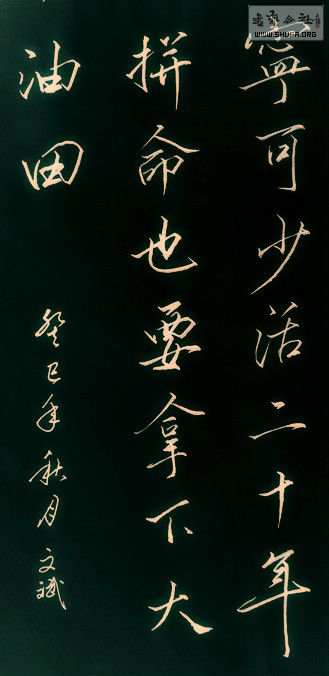 寧可少活二十年
拼命也要拿下大
油田
癸巳年秋月文斌
WWW.SHUFA.ORG